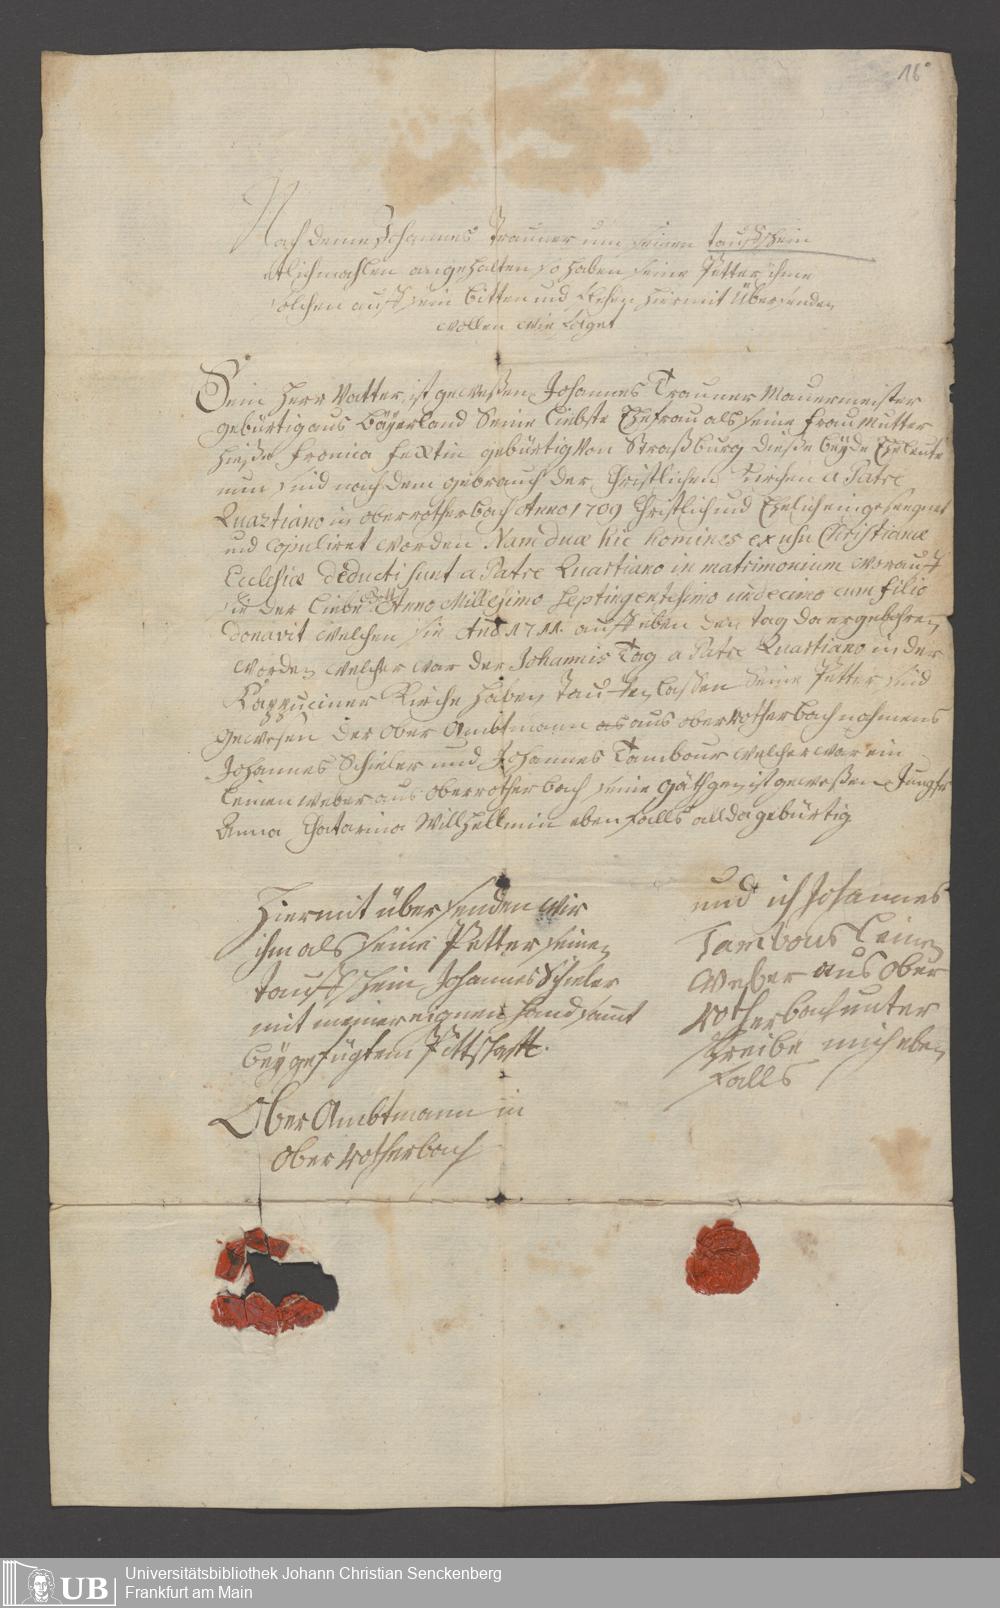 16
Nach deme Johannes Trauner um seinen tauffschein
etlichmahlen angehalten so haben seine Petter ihme
solchen auff sein bitten und flehen hiermit übersenden
wollen wie folget
Sein Herr Vatter ist geweßen Johannes Trauner Mauermeister
gebürtig aus bäyerland Seine liebste Ehefrau als seine frau Mutter
hieße fronica fextin gebürtig von Straßburg dieße beyde Eheleute
nun sind nach dem gebrauch der Christlichen Kirchen a Patre
Quartiano in oberrotherbach Anno 1709 Christlich und Ehelich eingeseegnet
und copuliret worden Nam duæ hic homines ex usu Christianæ
Ecclesiæ deducti sunt a Patre Quartiano in matrimonium worauff
sie der liebe Gott Anno Millesimo septingentesimo undecimo cum filio
donavit welchen sie And 1711. auff eben den tag da er gebohren
worden welcher war der Johannis Tag a Patre Quartiano in der
Cappuciner Kirche haben tauffen lassen Seine Petter sind
gewesen der ober Ambtmann as aus oberrotherbach nahmens
Johannes Schieler und Johannes Tambour welcher war ein
leinen weber aus oberrotherbach seine göthgen ist geweßen Jungfr
Anna Chatarina Willhellmin ebenfalls allda gebürtig
Hiermit übersenden wir
ihm als seine Petter seinen
tauffschein Johannes Schieler
mit meiner eignen hand samt
beygefügtem Pittschafft.
Ober Ambtmann in
Oberrotherbach
und ich Johannes
Tambour leinen
weber aus ober
rotherbach unter
schreibe mich eben
falls
UB
Universitätsbibliothek Johann Christian Senckenberg
Frankfurt am Main